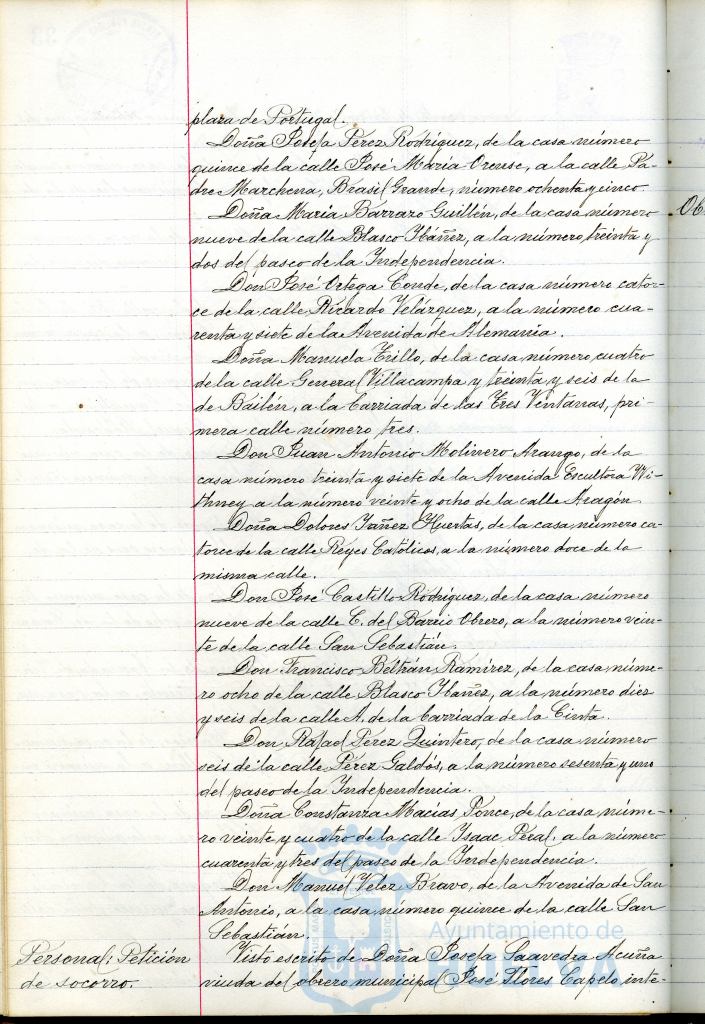 plaza de Portugal.
Doña Josefa Pérez Rodríguez, de la casa número
quince de la calle José María Orense, a la calle Pa-
dre Marchena, Brasil Grande, número ochenta y cinco.
Doña María Barrazo Guillén, de la casa número
nueve de la calle Blasco Ibáñez, a la número treinta y
dos del paseo de la Independencia.
Don José Ortega Conde, de la casa número cator-
ce de la calle Ricardo Velázquez, a la número cua-
renta y siete de la Avenida de Alemania.
Doña Manuela Trillo, de la casa número cuatro
de la calle General Villacampa y treinta y seis de la
de Bailén, a la barriada de las Tres Ventanas, pri-
mera calle número tres.
Don Juan Antonio Molinero Arango, de la
casa número treinta y siete de la Avenida Escultora Wi-
thney a la número veinte y ocho de la calle Aragón.
Doña Dolores Yañez Huertas, de la casa número ca-
torce de la calle Reyes Católicos, a la número doce de la
misma calle.
Don José Castillo Rodríguez, de la casa número
nueve de la calle C. del Barrio Obrero, a la número vein-
te de la calle San Sebastián.
Don Francisco Beltrán Ramírez, de la casa núme-
ro ocho de la calle Blasco Ibañez, a la número diez
y seis de la calle A. de la barriada de la Cinta.
Don Rafael Pérez Quintero, de la casa número
seis de la calle Pérez Galdós, a la número sesenta y uno
del paseo de la Independencia.
Doña Constanza Macías Ponce, de la casa núme-
ro veinte y cuatro de la calle Isaac Peral, a la número
cuarenta y tres del paseo de la Independencia.
Don Manuel Velez Bravo, de la Avenida de San
Antonio, a la casa número quince de la calle San
Sebastián.
Personal: Petición
de socorro.
Visto escrito de Doña Josefa Saavedra Acuña
viuda del obrero municipal José Flores Capelo inte-
Ayuntamiento de
HUELVA